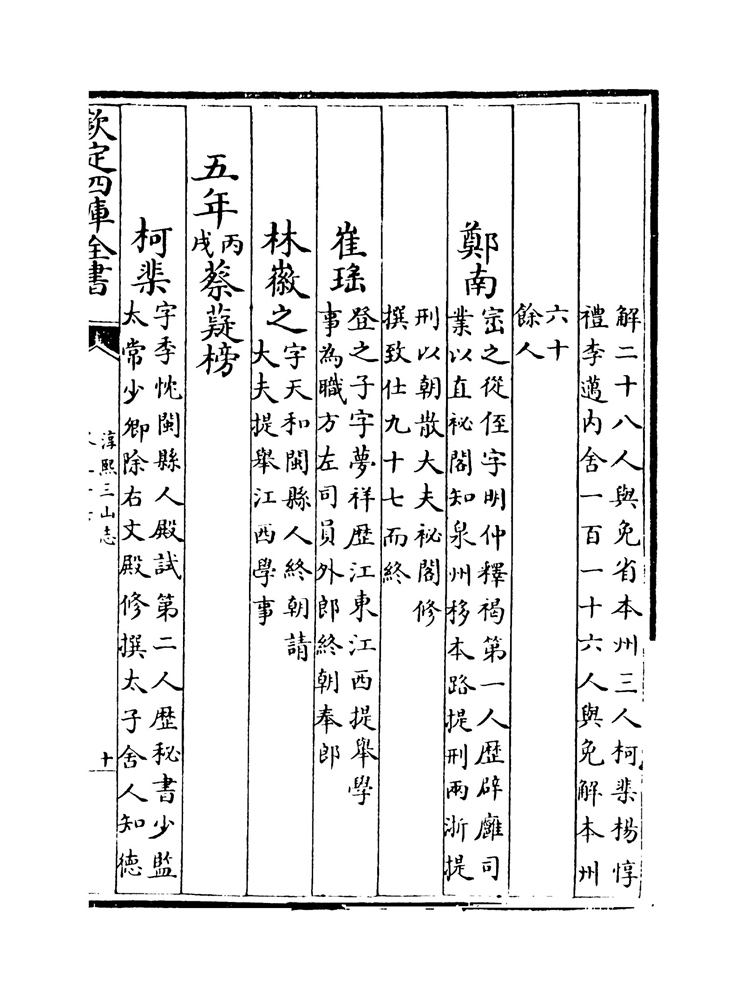 解二十八人與免省本州三人柯棐楊惇
禮李邁内舍一百一十六人與免解本州
六十
餘人
鄭南
宻之從侄字明仲釋褐第一人歴辟廱司
業以直祕閣知泉州移本路提刑兩浙提
刑以朝散大夫祕閣修
撰致仕九十七而終
崔瑤
登之子字夢祥歴江東江西提舉學
事為職方左司員外郎終朝奉郎
林徽之
字天和閩縣人終朝請
大夫提舉江西學事
五年
丙
戌
蔡薿榜
柯棐
字季忱閩縣人殿試第二人歴秘書少監
太常少卿除右文殿修撰太子舍人知德
欽定四庫全書
淳熙三山志
十